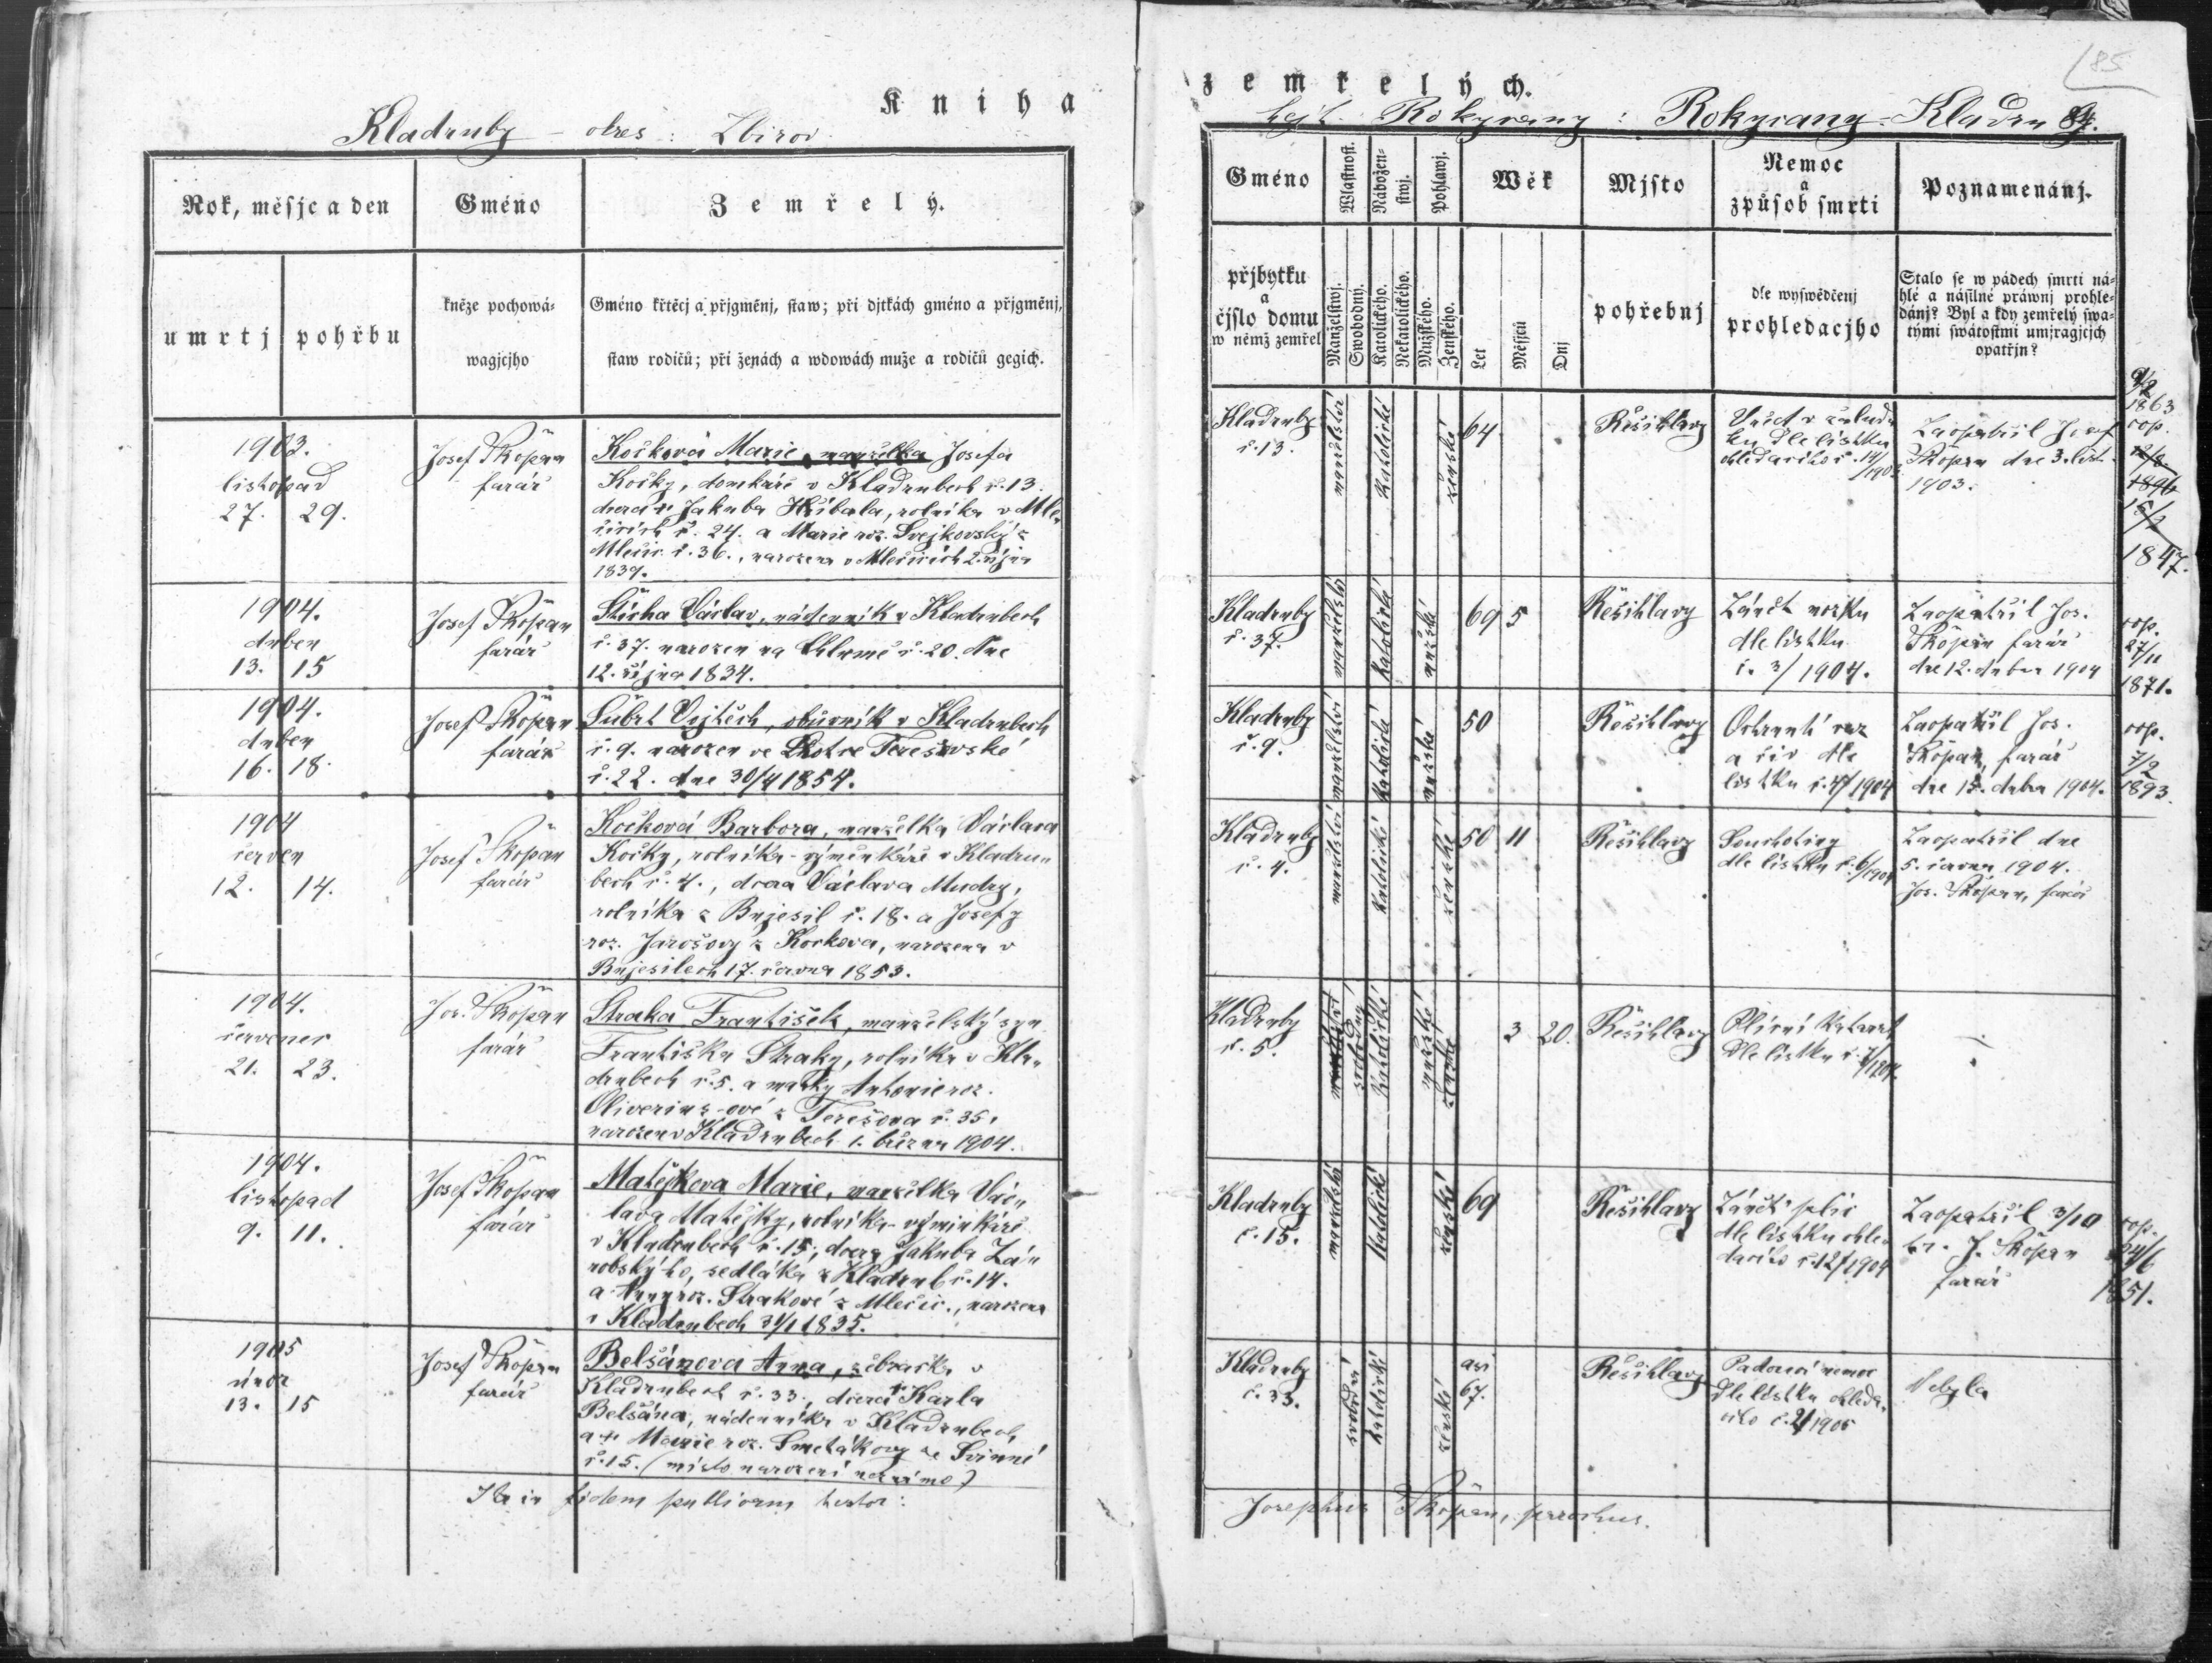 Kniha
Kladruby – okres: Zbirov
Rok, měsjc a den
Gméno
Zemřelý.
umrtj
pohřbu
kněze pochowá-
wagjcjho
Gméno křtěcj a přjgměnj, staw; při djtkách gméno a přjgměnj,
staw rodičů; při ženách a wdowách muže a rodičů gegich.
1903.
listopad
27. 29.
Josef Škopan
farář
Kočková Marie, manželka Josefa
Kočky, domkáře v Kladrubech č. 13.
dcera † Jakuba Hřibala, rolníka v Mle
čicích č. 24. a Marie roz. Svejkovský z
Mlečic č. 36., narozena v Mlečicích 2. října
1839.
1904.
duben
13. 15
Josef Škopan
farář
Šticha Václav, nádenník v Kladrubech
č. 37. narozen na Chlumě č. 20. dne
12. října 1834.
1904.
duben
16. 18.
Josef Škopan
farář
Šubrt Vojtěch, obuvník v Kladrubech
č. 9. narozen ve Lhotce Terešovské
č. 22. dne 30/4 1854.
1904
červen
12. 14.
Josef Škopan
farář
Kočková Barbora, manželka Václava
Kočky, rolníka-výměnkáře v Kladru-
bech č. 4., dcera Václava Mudry,
rolníka z Bujesil č. 18. a Josefy
roz. Jarošovy z Kockova, narozena v
Bujesilech 17. června 1853.
1904.
červenec
21. 23.
Jos. Škopan
farář
Straka František, manželský syn
Františka Straky, rolníka v Kla-
drubech č. 5. a matky Antonie roz.
Oliverius-ové z Terešova č. 35.
narozen v Kladrubech 1. března 1904.
1904.
listopad
9. 11.
Josef Škopan
farář
Matějkova Marie, manželka Vác-
lava Matějky, rolníka-výminkáře
v Kladrubech č. 15., dcera Jakuba Zá-
robského, sedláka z Kladrub č. 14.
a Anny roz. Strakové z Mlečic., narozena
v Kladrubech 31/1 1835.
1905
únor
13. 15
Josef Škopan
farář
Belšánova Anna, žebračka v
Kladrubech č. 33., dcera † Karla
Belšána, nádenníka v Kladrubech
a † Marie roz. Smetákovy ze Svinné
č. 15. (místo narození neznámo)
Ita in fidem publicam testor:
zemřelých.
85
hejt. Rokycany: Rokycany-Kladru 84.
Gméno
Wlastnost.
Nábožen-
stwj.
Pohlawj.
Wěk
Mjsto
Nemoc
a
způsob smrti
Poznamenánj.
přjbytku
a
čjslo domu
w němž zemřel
Manželstwj.
Swobodný.
Katolického.
Nekatolického.
Mužského.
Ženského.
Let
Měsjců
Dnj
pohřebnj
dle wyswědčenj
prohledacjho
Stalo se w pádech smrti ná-
hlé a násilné práwnj prohle-
dánj? Byl a kdy zemřelý swa-
tými swátostmi umjragjcjch
opatřjn?
Kladruby
č. 13.
manželství
katolické
ženské
64
Řešihlavy
Vřed v žalud-
ku dle lístku
ohledacího č. 14/
1903
Zaopatřil Josef
Škopan dne 3. list.
1903.
9/2
1863
cop.
1896
1847.
Kladruby
č. 37.
manželský
katolické
mužské
69 5
Řešihlavy
Zánět mozku
dle lístku
č. 3/1904.
Zaopatřil Jos.
Škopan farář
dne 12. dubna 1904
cop.
27/11
1871.
Kladruby
č. 9.
manželství
katolické
mužské
50
Řešihlavy
Ochrnutí
a
dle
lístku č. 4/1904
Zaopatřil Jos.
Škopan, farář
dne 15. dubna 1904.
cop.
7/2
1893.
Kladruby
č. 4.
manželství
katolické
ženské
50 11
Řešihlavy
Souchotiny
dle lístku č. 6/1904
Zaopatřil dne
5. června 1904.
Jos. Škopan, farář
Kladruby
č. 5.
svobodný
katolické
mužské
3 20.
Řešihlavy
Plícní katarrh
dle lístku č. 7/1904.
Kladruby
č. 15.
manželský
katolické
ženské
69
Řešihlavy
Zánět plic
dle lístku ohle-
dacího č. 12/1904
Zaopatřil 3/10
t.r. J. Škopan
farář
cop.
24/6
1851.
Kladruby
č. 33.
svobodná
katolické
ženské
asi
67.
Řešihlavy
Padoucí nemoc
dle lístku ohleda-
cího č. 2/1905
Nebyla
Josephus Škopan, parochus.